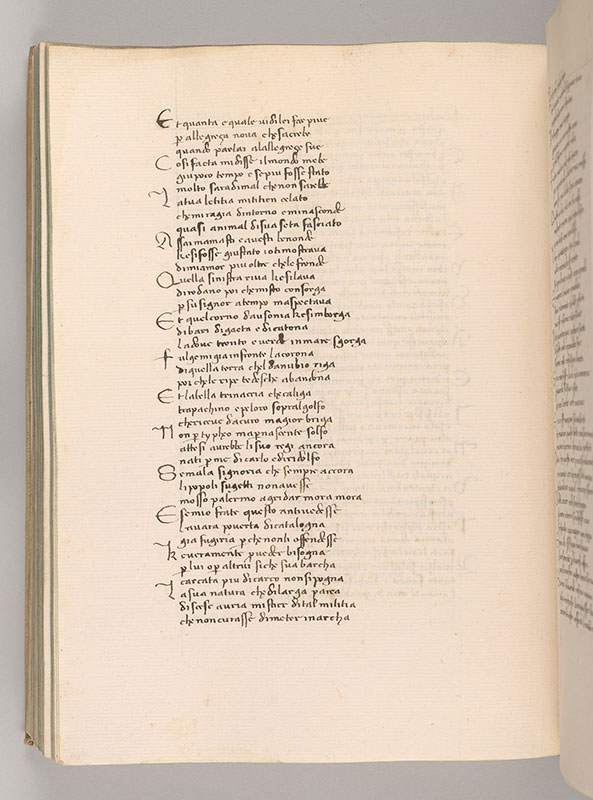 Et quanta e quale vidilei far piue
p allegreça nova che sacrebe
quando parlai alallegreçe sue
Cosi facta midisse ilmondo mebe
giuporo tempo e sepiu fosse stato
molto saradimal che non sarebbe
Latua letitia mititien celato
chemiragia dintorno eminasconde
quasi animal disua seta fasciato
Assai mamasti cavesti benonde
kesifosse giustato iotimostrava
dimiamor piu oltre chele fronde
Quella sinistra riva kesilava
dirodano poi chemisto consorga
p su signor a tempo maspectava
Et quelcorno dausonia kesimborga
dibari digaeta edicatona
Ladove tronto e verde inmare sgorga
Fulgemi gia infronte lacorona
diquella terra chel danubio riga
poi che le ripe tedesche abandona
Et labella trinacria checaliga
trapachino epeloro sopralgolfo
chericeve dacuro magior briga
Non p typheo ma p nascente solfo
attesi avrebbe li suo regi ancora
nati p me dicarlo ediridolfo
Se mala signoria che sempre accora
lipopoli sugetti nonavesse
mosso palermo agridar mora mora
E semio frate questo antivedesse
lavara poverta dicatalogna
gia fugiria p che nonli offendesse
ke veramente proveder bisogna
p lui o p altrui siche sua barcha
carcata piu dicarco nonsipogna
La sua natura chedilarga parca
discese avria mistier dital militia
che non curasse dimeter inarcha